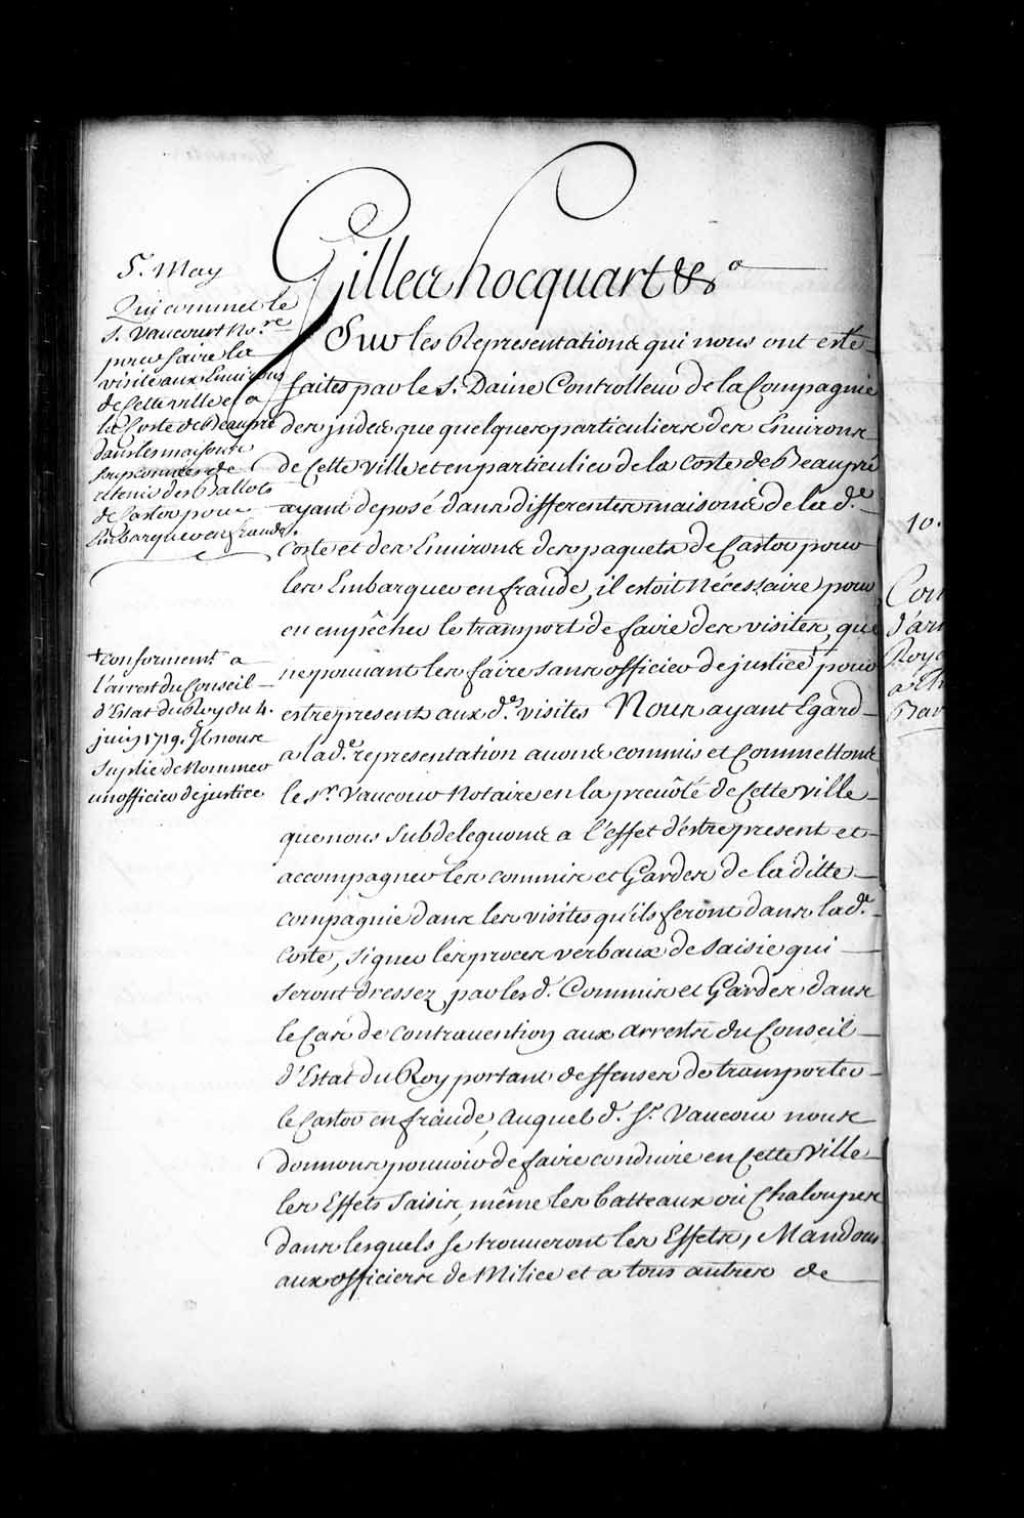 5. May
Qui commet le
S. Vaucourt No.re
pour faire la
visite aux Environs
de Cette ville et a
la Coste de Beaupré
dans les maisons
soupçonnées de
detenir des Ballots
de Castor pour
Embarquer en fraude.
Gilles hocquart &a
Sur les Representations qui nous ont esté
faites par le S. Daine Controlleur de la Compagnie
des jndes que quelques particuliers des Environs
de Cette ville et en particulier de la Coste de Beaupré
ayant deposé dans differentes maisons de la de.
Coste et des Environs des paquets de Castor pour
les Embarquer en fraude, il estoit Nécessaire pour
en empêcher le transport de faire des visites, que
ne pouvant les faire sans officier de justice + pour
estre present aux des. visites Nous ayant Egard
a la de. representation avons commis et Commettons
le Sr. Vaucour Notaire en la prevôté de Cette ville
que nous Subdeleguons a l'effet d'estre present et
accompagner les commis et Gardes de la ditte
compagnie dans les visites qu'ils feront dans la de.
Coste, signer les proces verbaux de saisie qui
seront dressez par les d. Commis et Gardes dans
le Cas de Contravention aux arrests du Conseil
d'Estat du Roy portant deffenses de transporter
le Castor en fraude, Auquel d. Sr. Vaucour nous
donnons pouvoir de faire conduire en Cette Ville
les Effets saisis, même les batteaux ou Chaloupes
dans lesquels se trouveront les Effets, Mandons
aux officiers de Milice et a tous autres de
+ conforment a
l'arrest du Conseil
d'Estat du Roy du 4.
juin 1719. Il nous
suplie de Nommer
un officier de justice
10.